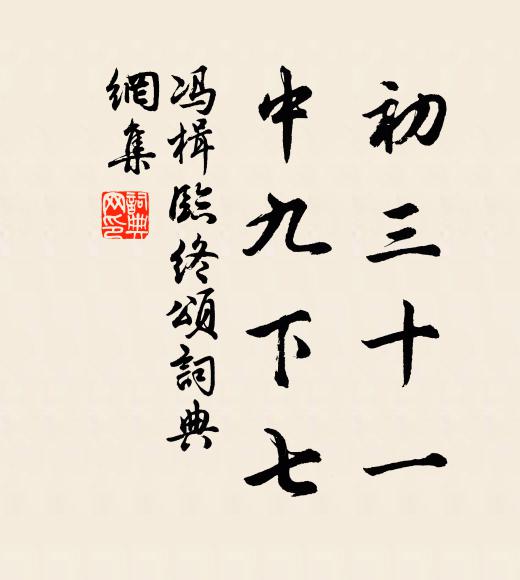 初三十一
中九下七
冯楫臨终頌詞典
網集
詞典
网印